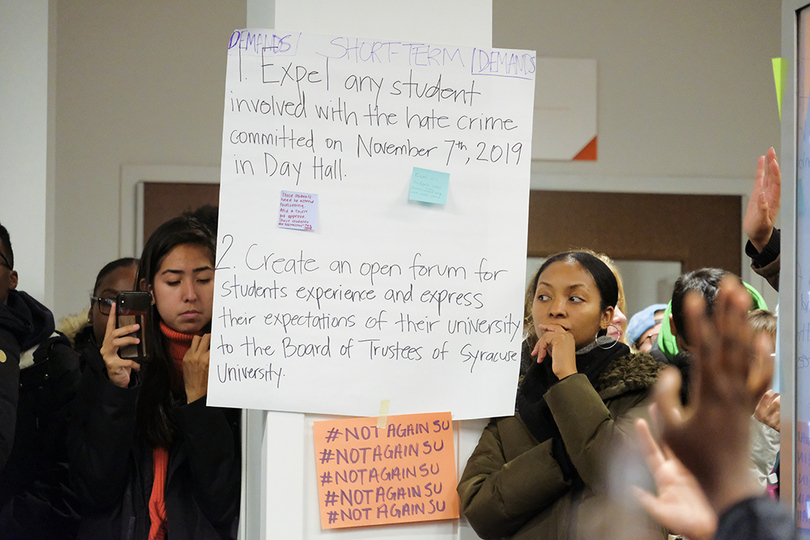 DEMANDS/ SHORT-TERM DEMANDS
1. Expel any student
involved with the hate crime
committed on November 7th, 2019
in Day Hall.
2. Create an open forum for
students experience and express
their expectations of their university
to the Board of Trustees of Syracuse
University.
#NOT AGAIN SU
#NOT AGAIN SU
#NOT AGAIN SU
#NOT AGAIN SU
#NOT AGAIN SU